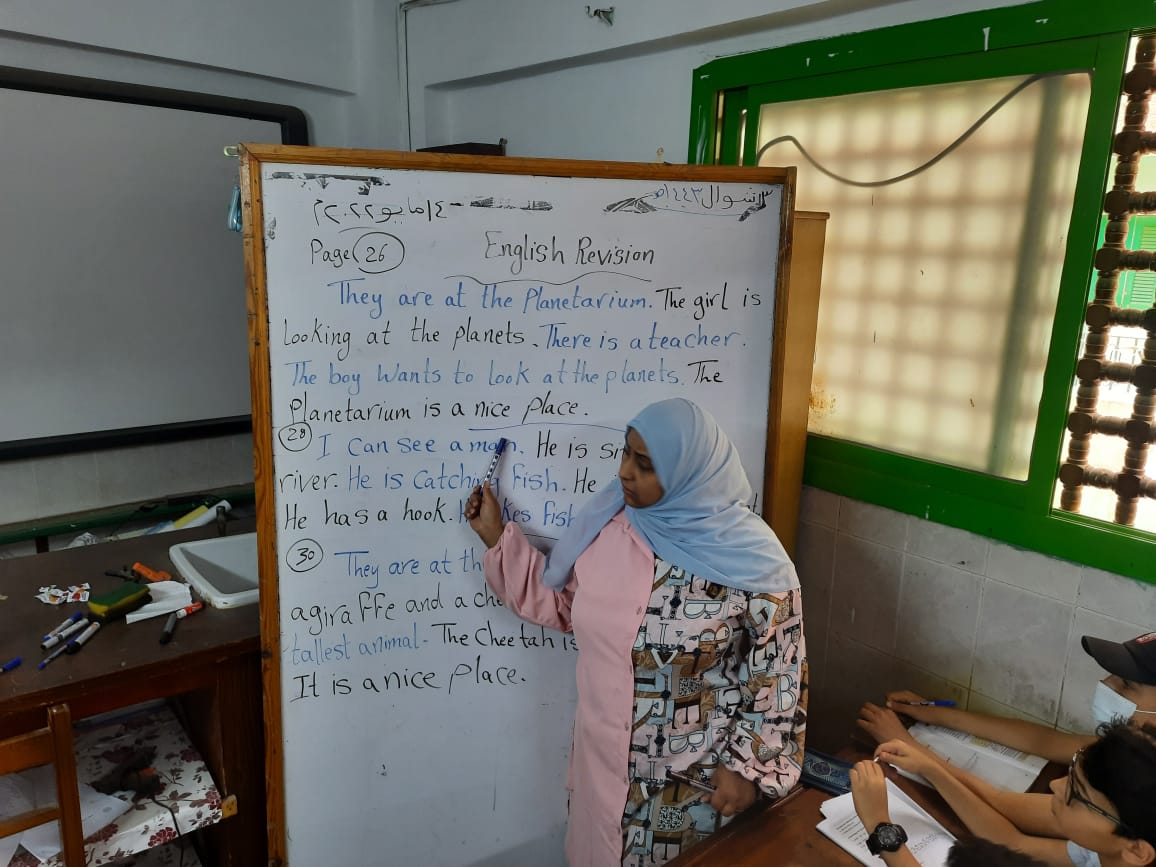 ١٤مايو٢٠٢٢م
شوال١٤٤٣هـ
Page 26
English Revision
They are at the Planetarium. The girl is
Looking at the planets. There is a teacher.
The boy Wants to look at the planets. The
Planetarium is a nice place.
28 I can see a man. He is
river. He is catching fish. He
He has a hook. fish
30 They are at
a giraffe and a
tallest animal. The cheetah is
It is a nice place.